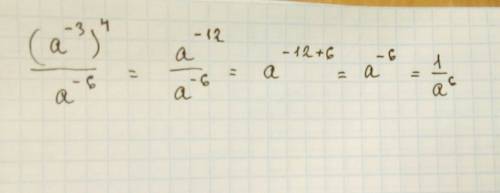 (a⁻³)⁴/a⁻⁶ = a⁻¹²/a⁻⁶ = a⁻¹²⁺⁶ = a⁻⁶ = 1/a⁶